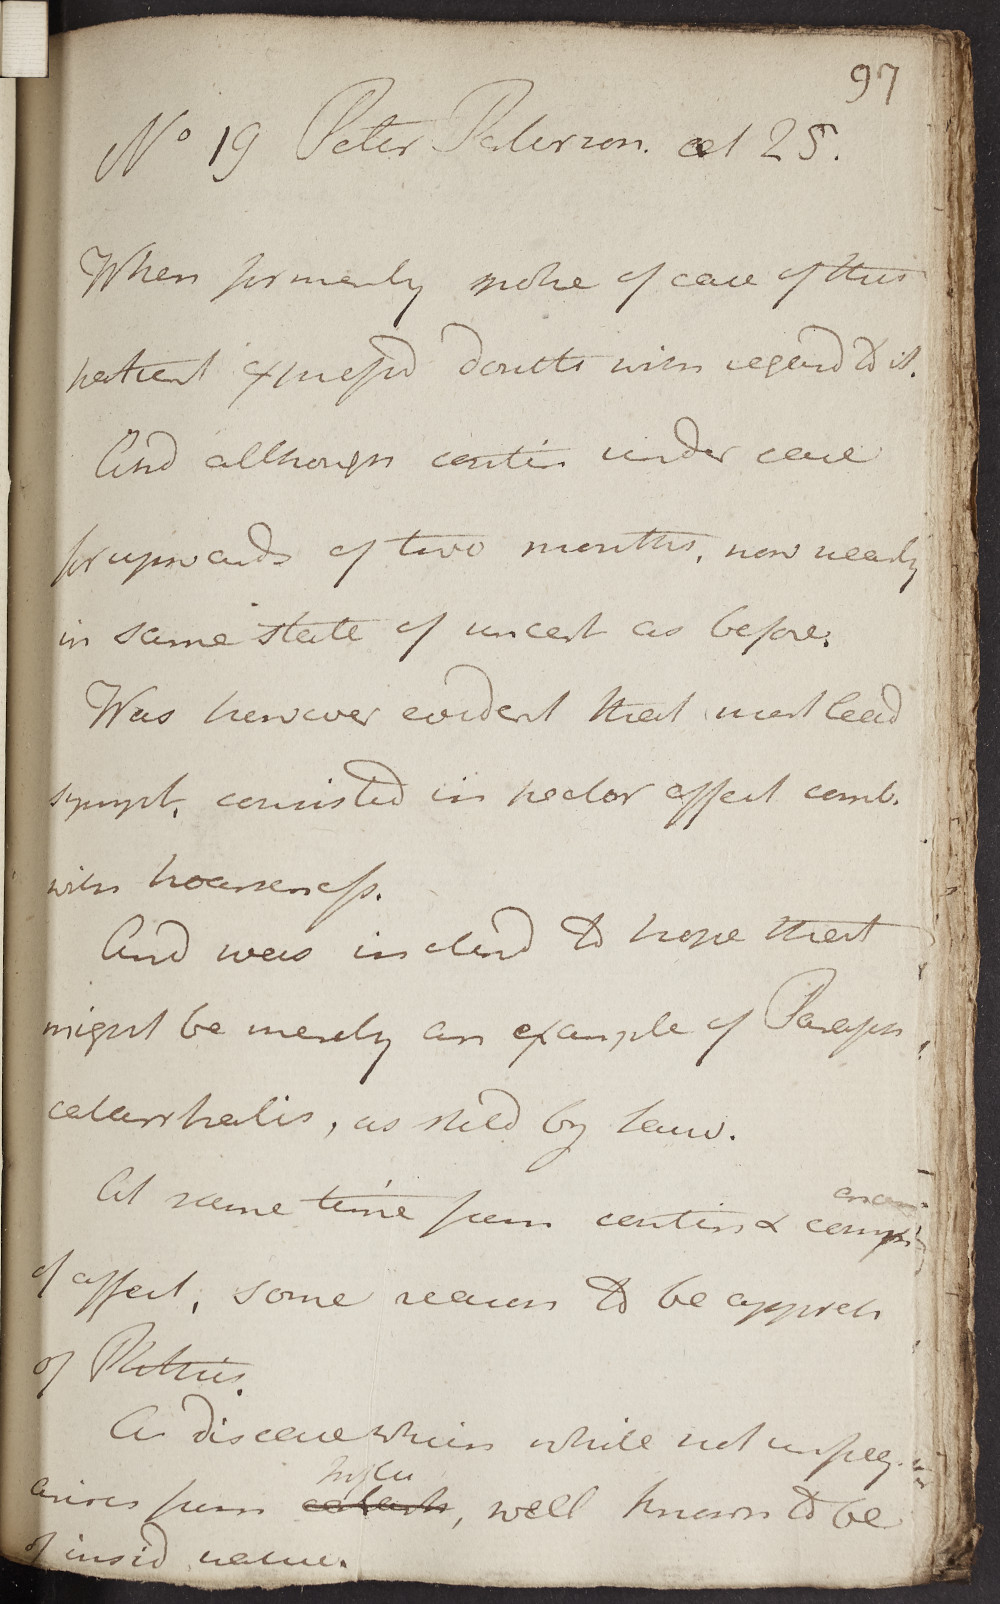 97
No 19 Peter Paterson. aet 25.
When formerly spoke of case of this
patient expressd doubts with regard to it.
And although contin under care
for upwards of two months, now nearly
in same state of uncert as before.
Was however evident that most lead
sympt, consisted in pector affect comb.
with hoarseness.
And was inclind to hope that
might be merely an example of Paraph
catarrhalis, as stild by Sauv.
At same time from contin &
of affect, some reason to be appreh
of Phthisis.
A disease which while not unfreq.
influ
arises from catarrh, well known to be
of insid nature.